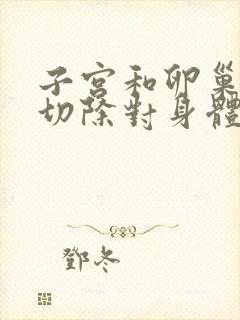 子宮和卵巢
切除對身體
鄧冬